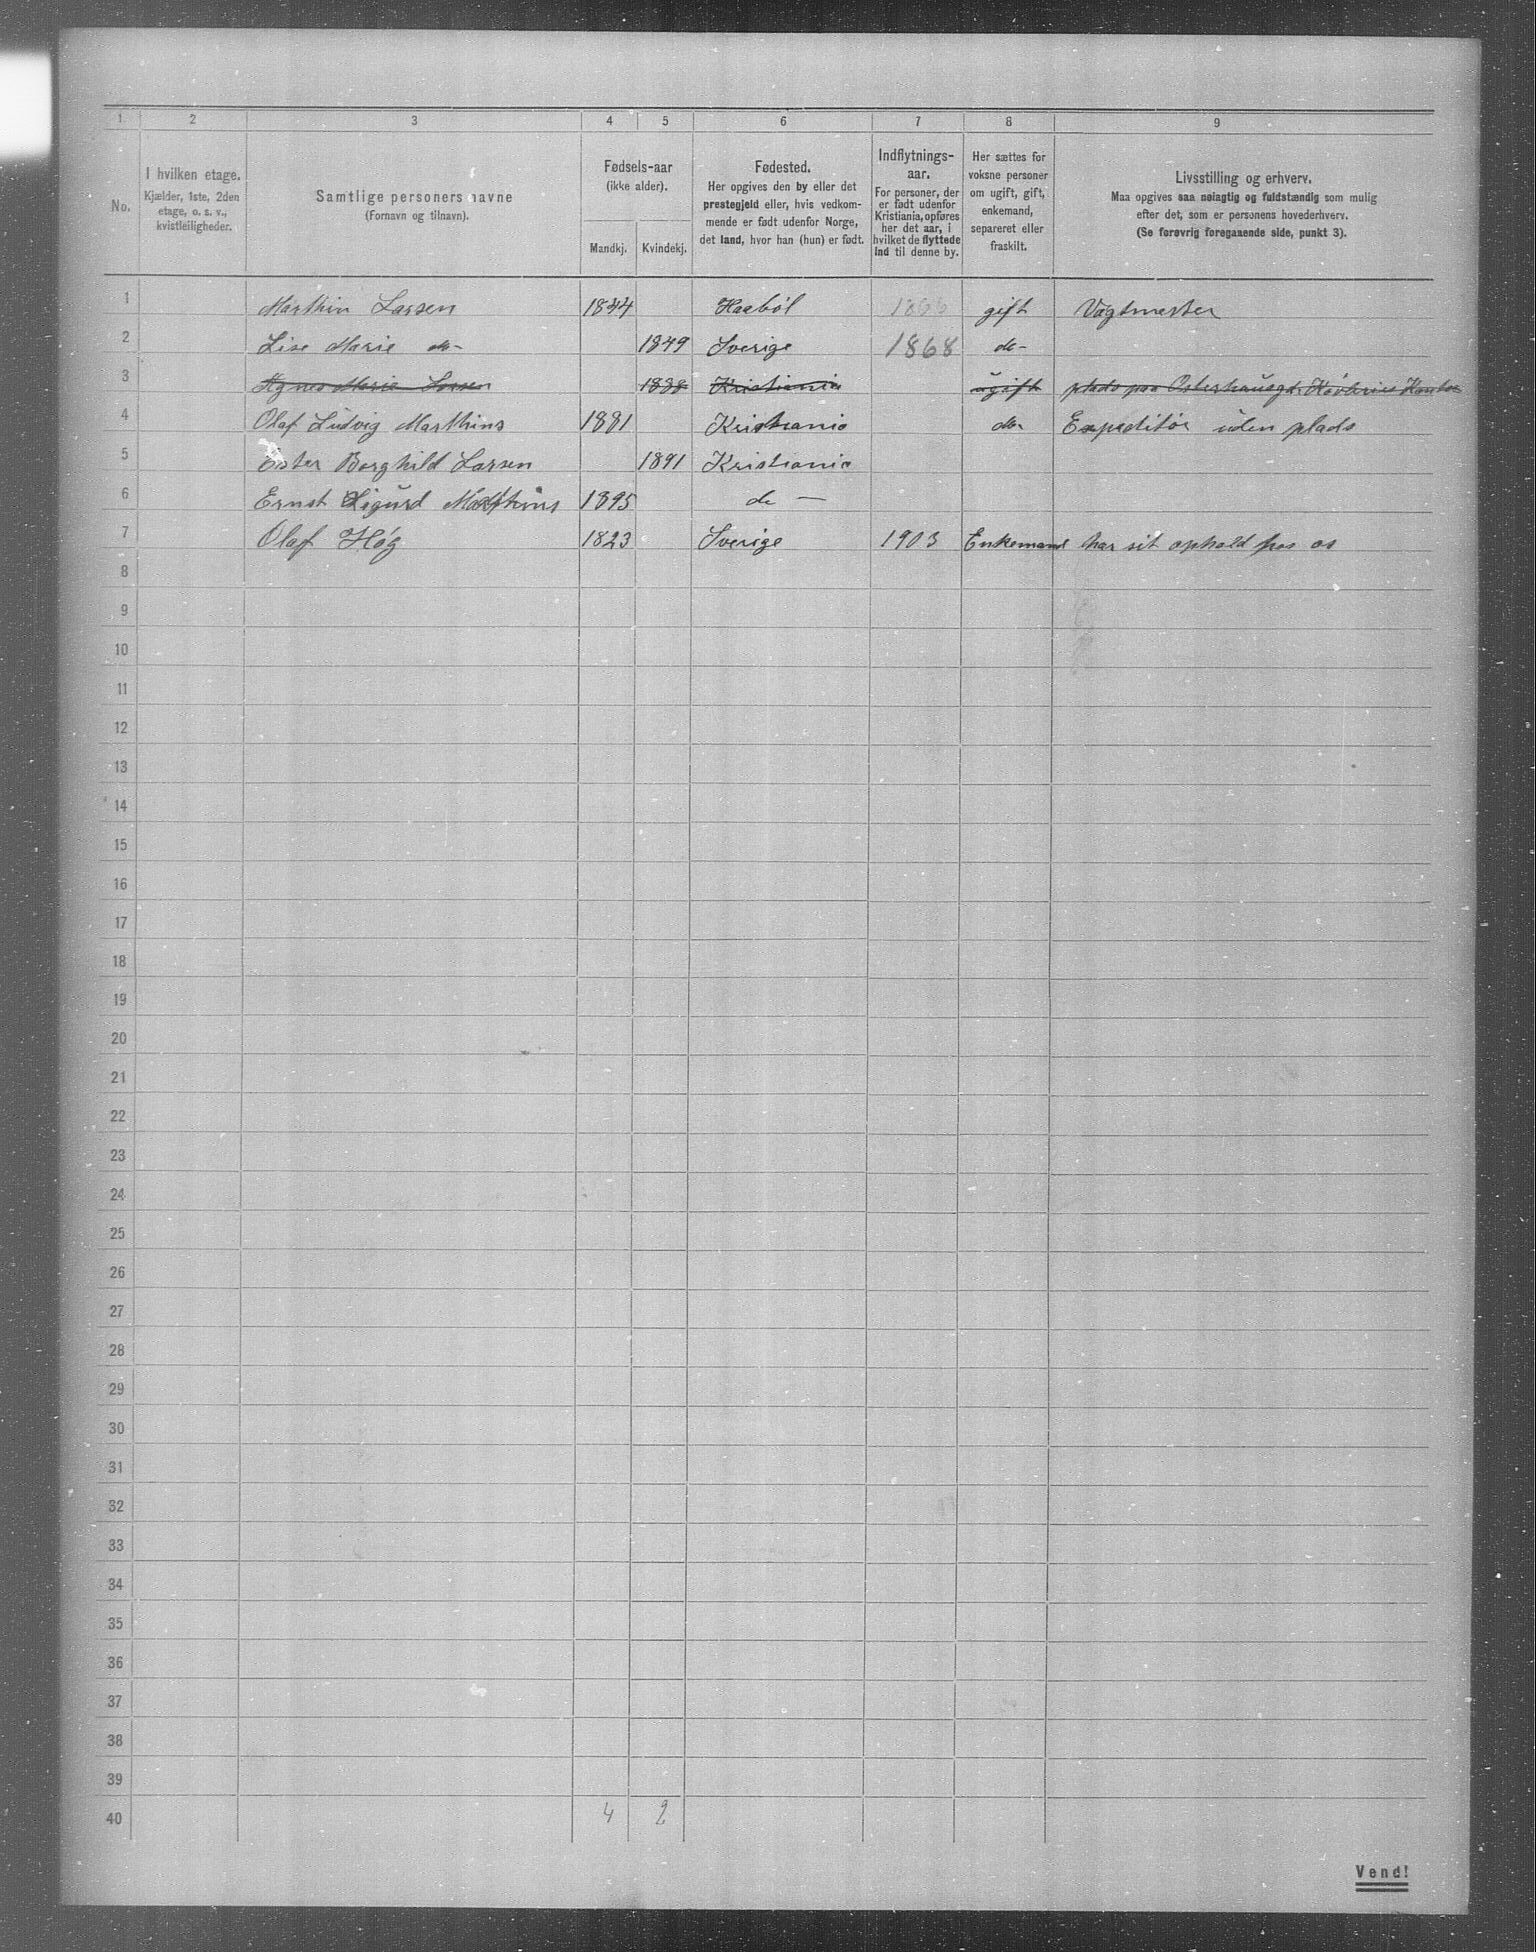 1 2 3 4 5 6 7 8 9
No.
I hvilken etage.
Kjælder, 1ste, 2den
etage, o. s. v.,
kvistleiligheder.
Samtlige personers navne
(Fornavn og tilnavn).
Fødsels-aar
(ikke alder).
Mandkj. Kvindekj.
Fødested.
Her opgives den by eller det
prestegjeld eller, hvis vedkom-
mende er født udenfor Norge,
det land, hvor han (hun) er født.
Indflytnings-
aar.
For personer, der
er født udenfor
Kristiania, opføres
her det aar, i
hvilket de flyttede
ind til denne by.
Her sættes for
voksne personer
om ugift, gift,
enkemand,
separeret eller
fraskilt.
Livsstilling og erhverv.
Maa opgives saa nøiagtig og fuldstændig som mulig
efter det, som er personens hovederhverv.
(Se forøvrig foregaaende side, punkt 3).
1 Marthin Larsen 1844 Haabøl gift Vagtmester
2 Lise Marie do- 1849 Sverige 1868 do-
3 Agnes Marie Larsen Kristiania ugift plads paa Osterhausgd.
4 Olaf Ludvig Marthins 1881 Kristiania do- Expeditør uden plads
5 Ester Borghild Larsen 1891 Kristiania
6 Ernst Sigurd Marthins 1895 do —
7 Olaf Høg 1823 Sverige 1903 Enkemand har sit ophold hos os
8
9
10
11
12
13
14
15
16
17
18
19
20
21
22
23
24
25
26
27
28
29
30
31
32
33
34
35
36
37
38
39
40 4 2
Vend!